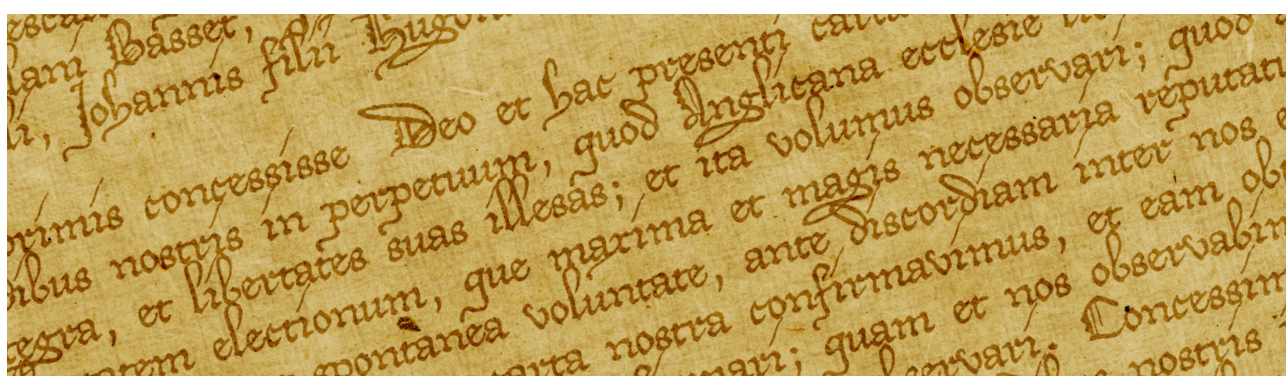 Basset,
Johannis filii Hugon
orimis concessisse Deo et hac presenti carta
dibus nostris in perpetuum, quod Anglicana ecclesie li
tegra, et libertates suas illesas; et ita volumus observari; quod
tatem electionum, que maxima et magis necessaria reputati
spontanea voluntate, ante discordiam inter nos e
carta nostra confirmavimus, et eam ob
nari; quam et nos observabim
servari. Concessim
nostris